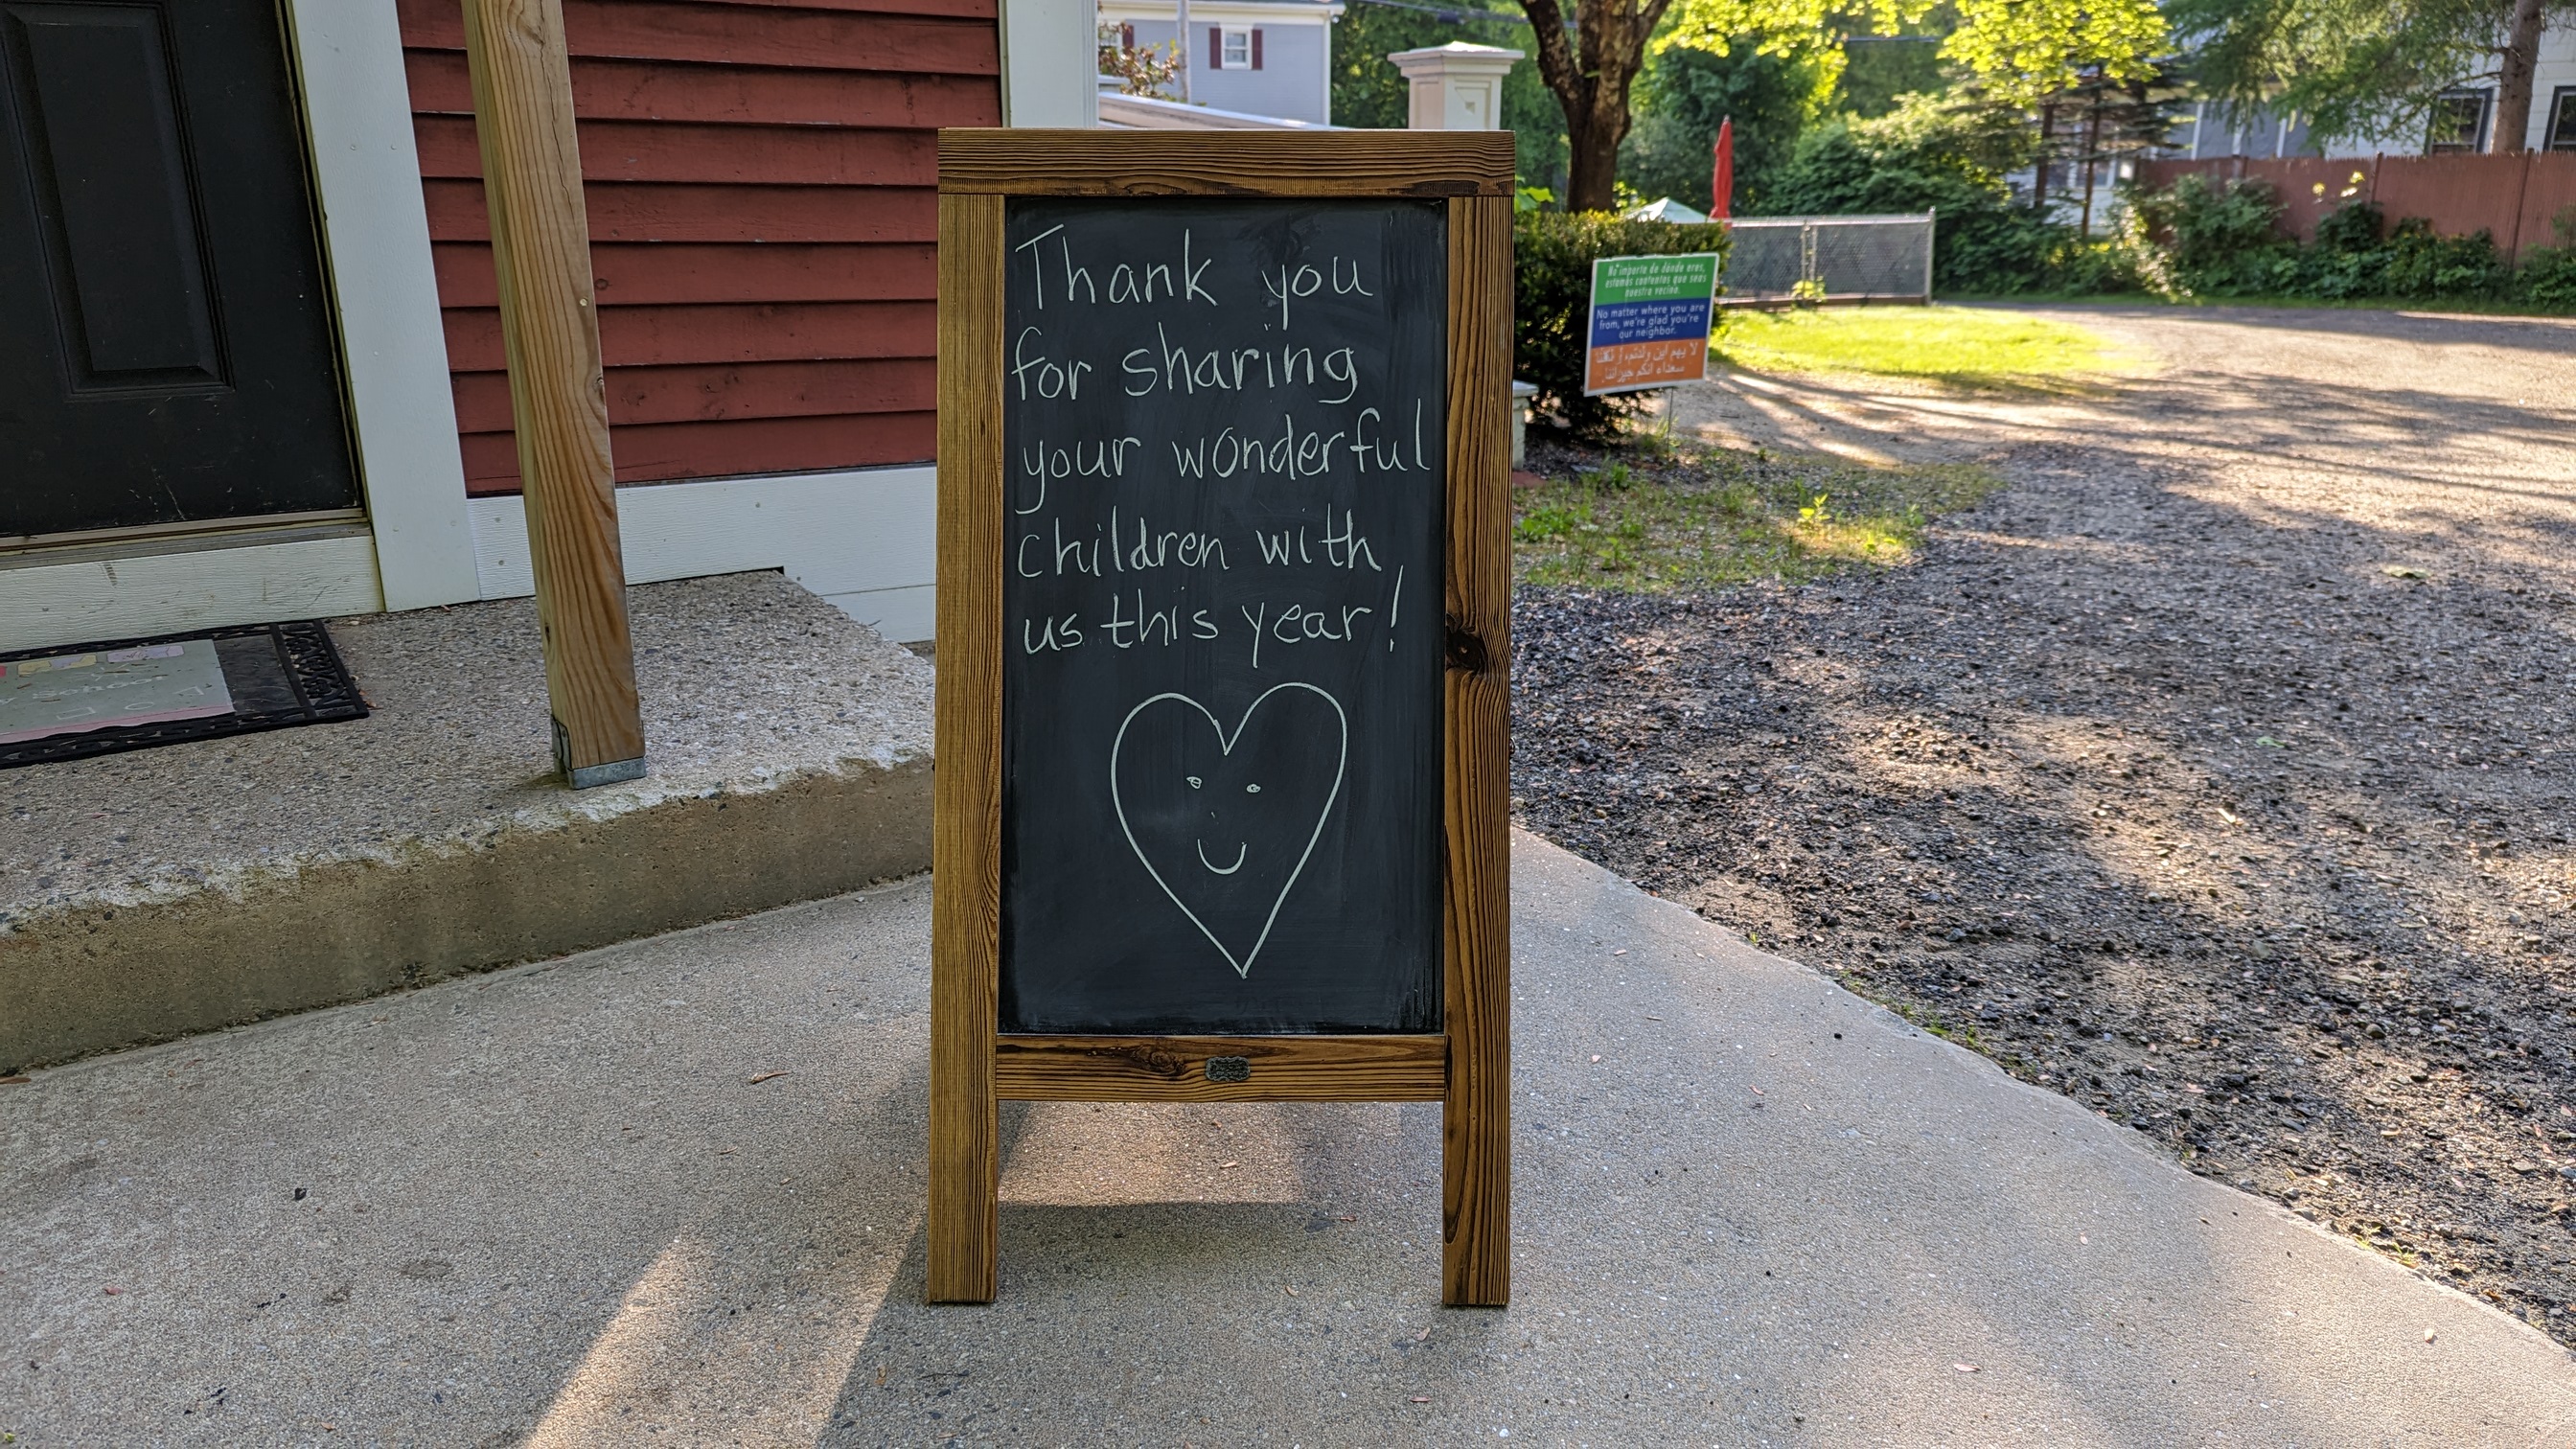 Thank you
for sharing
your wonderful
children with
us this year!
No importa de dónde eres,
estamos contentos que seas
nuestro vecino.
No matter where you are
from, we're glad you're
our neighbor.
لا يهم أين ولدتم، أو نكهتنا
سعداء أنكم جيراننا.
School